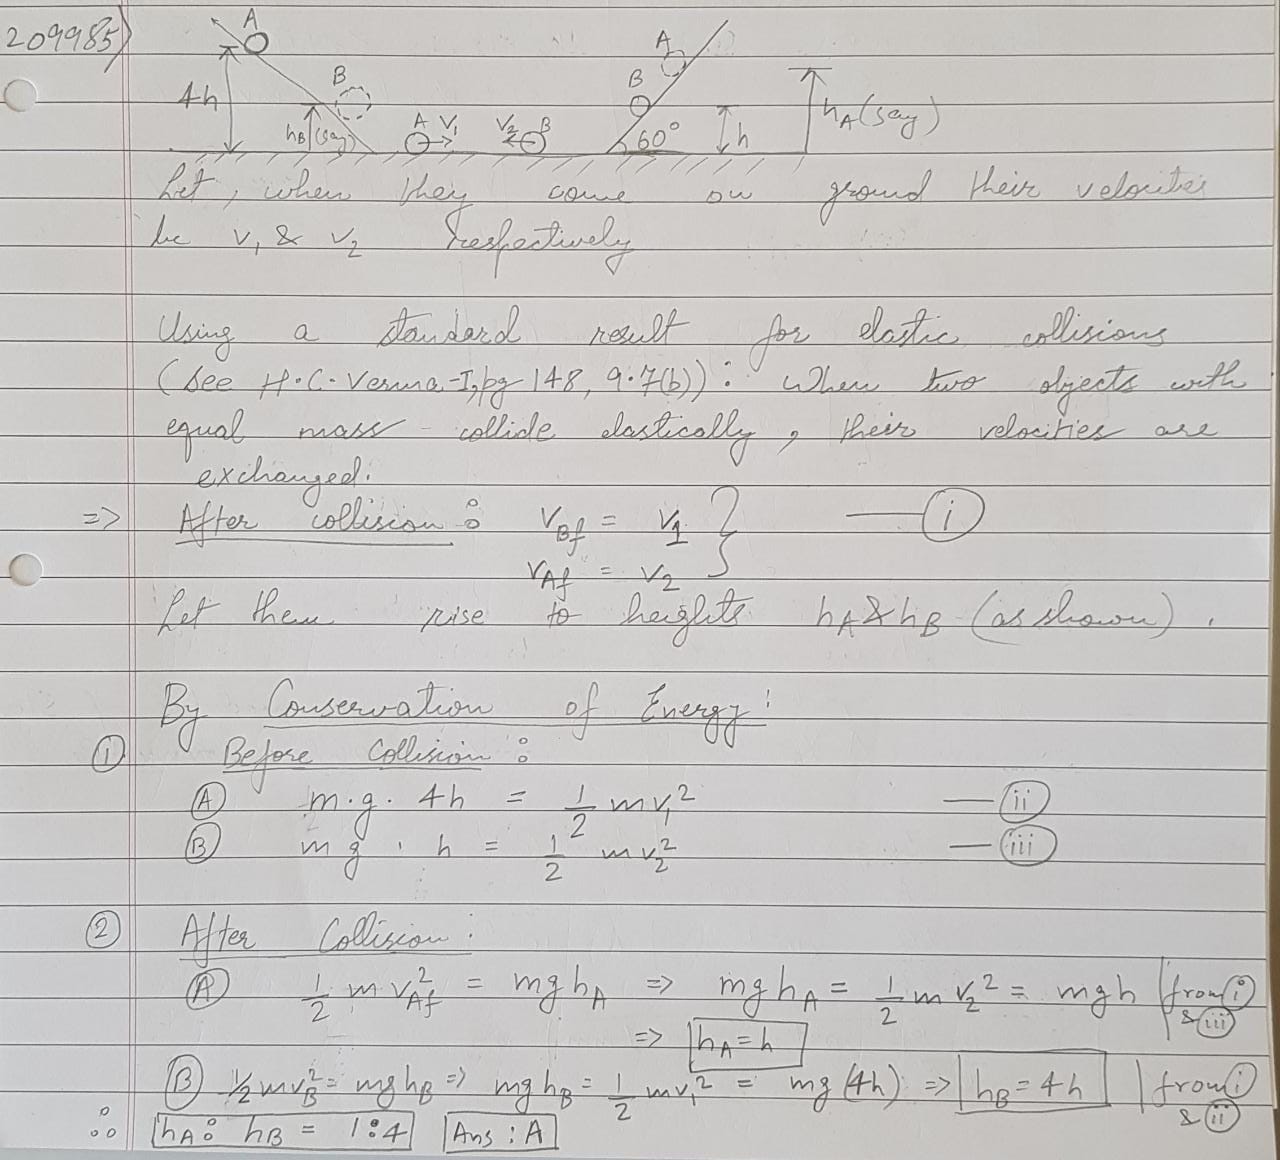 209985)
A
A
B
B
4h
hB (say)
A V₁
V₂ B
60°
h
hA (say)
Let, when they come on ground their velocities
be v₁ & v₂ respectively
Using a standard result for elastic collisions
(see H.C. Verma-I, pg 148, 9.7(b)): When two objects with
equal mass collide elastically, their velocities are
exchanged.
=> After collision: vBf = v₁ } — (i)
vAf = v₂
Let them rise to heights hA & hB (as shown).
By Conservation of Energy:
① Before Collision:
Ⓐ m.g. 4h = 1/2 mv₁² — (ii)
Ⓑ mg . h = 1/2 mv₂² — (iii)
② After Collision:
Ⓐ 1/2 m vAf² = mghA => mghA = 1/2 m v₂² = mgh | from (i) & (iii)
=> hA = h
Ⓑ 1/2 mvB² = mghB => mghB = 1/2 mv₁² = mg(4h) => hB = 4h | from (i) & (ii)
∴ hA : hB = 1:4 Ans : A